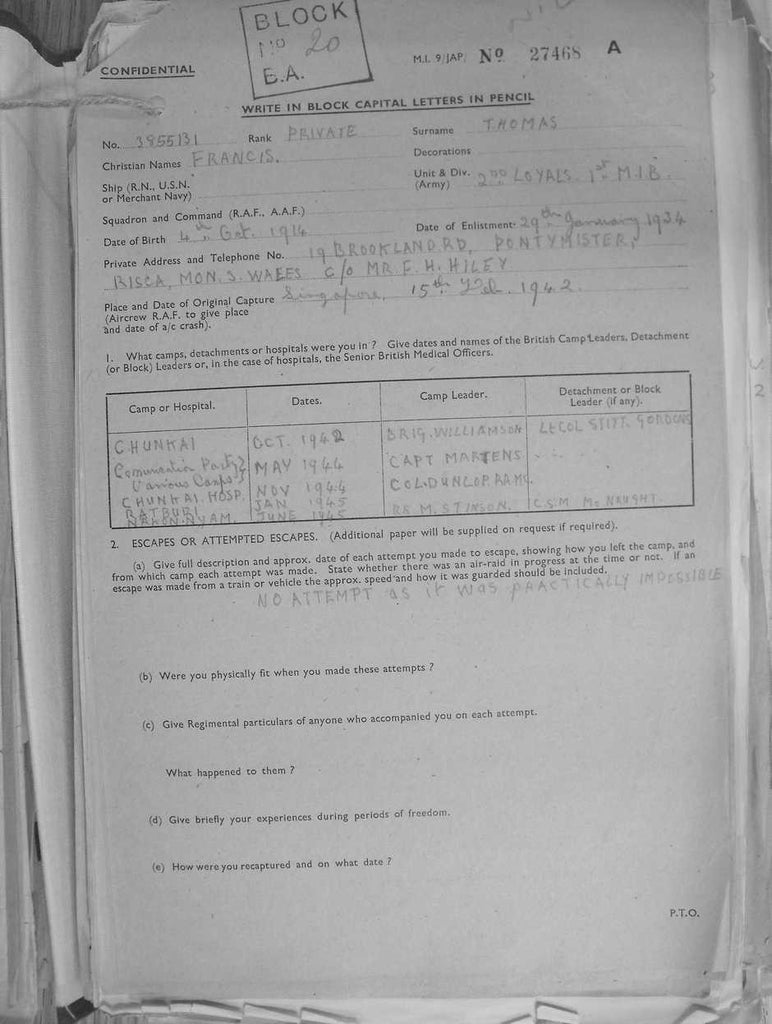 BLOCK
No 20
B.A.
CONFIDENTIAL
M.I. 9/JAP/ No. 27468 A
WRITE IN BLOCK CAPITAL LETTERS IN PENCIL
No. 3855131 Rank PRIVATE Surname THOMAS
Christian Names FRANCIS. Decorations
Ship (R.N., U.S.N. or Merchant Navy)
Unit & Div. (Army) 2ND LOYALS. 1st M.I.B.
Squadron and Command (R.A.F., A.A.F.)
Date of Birth 4th Oct. 1914 Date of Enlistment 29th January 1934
Private Address and Telephone No. 19 BROOKLAND RD, PONTYMISTER,
RISCA, MON. S. WALES C/o MR. F. H. HILEY
Place and Date of Original Capture Singapore, 15th Feb. 1942.
(Aircrew R.A.F. to give place
and date of a/c crash).
1. What camps, detachments or hospitals were you in ? Give dates and names of the British Camp Leaders, Detachment
(or Block) Leaders or, in the case of hospitals, the Senior British Medical Officers.
Camp or Hospital. Dates. Camp Leader. Detachment or Block Leader (if any).
CHUNKAI OCT. 1942 BRIG. WILLIAMSON LT COL STITT. GORDONS
Various Camps MAY 1944 CAPT MARTENS
CHUNKAI. HOSP. NOV 1944 COL. DUNLOP RAMC.
RATBURI JAN 1945
NAKON NYAM. JUNE 1945 R.S.M. STINSON. C.S.M. McNAUGHT.
2. ESCAPES OR ATTEMPTED ESCAPES. (Additional paper will be supplied on request if required).
(a) Give full description and approx. date of each attempt you made to escape, showing how you left the camp, and
from which camp each attempt was made. State whether there was an air-raid in progress at the time or not. If an
escape was made from a train or vehicle the approx. speed and how it was guarded should be included.
NO ATTEMPT AS IT WAS PRACTICALLY IMPOSSIBLE
(b) Were you physically fit when you made these attempts ?
(c) Give Regimental particulars of anyone who accompanied you on each attempt.
What happened to them ?
(d) Give briefly your experiences during periods of freedom.
(e) How were you recaptured and on what date ?
P.T.O.